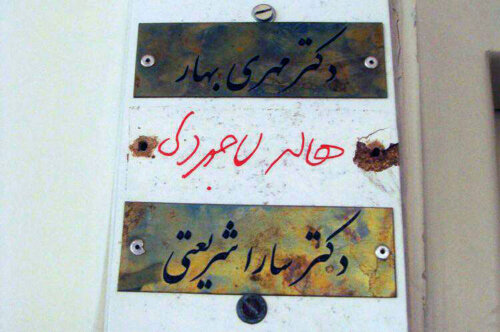 دکتر مهری بهار
هاله لاجوردی
دکتر سارا شریعتی